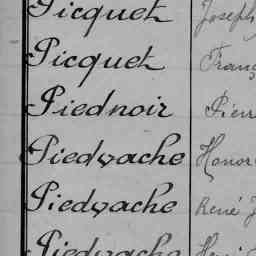 Picquet Joseph
Picquet Franç
Piednoir Pierr
Piedvache Honor
Piedvache René J
Piedvache Henri